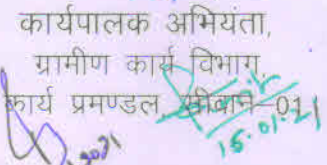 कार्यपालक अभियंता,
ग्रामीण कार्य विभाग
कार्य प्रमण्डल, सीवान-01
15.01.21